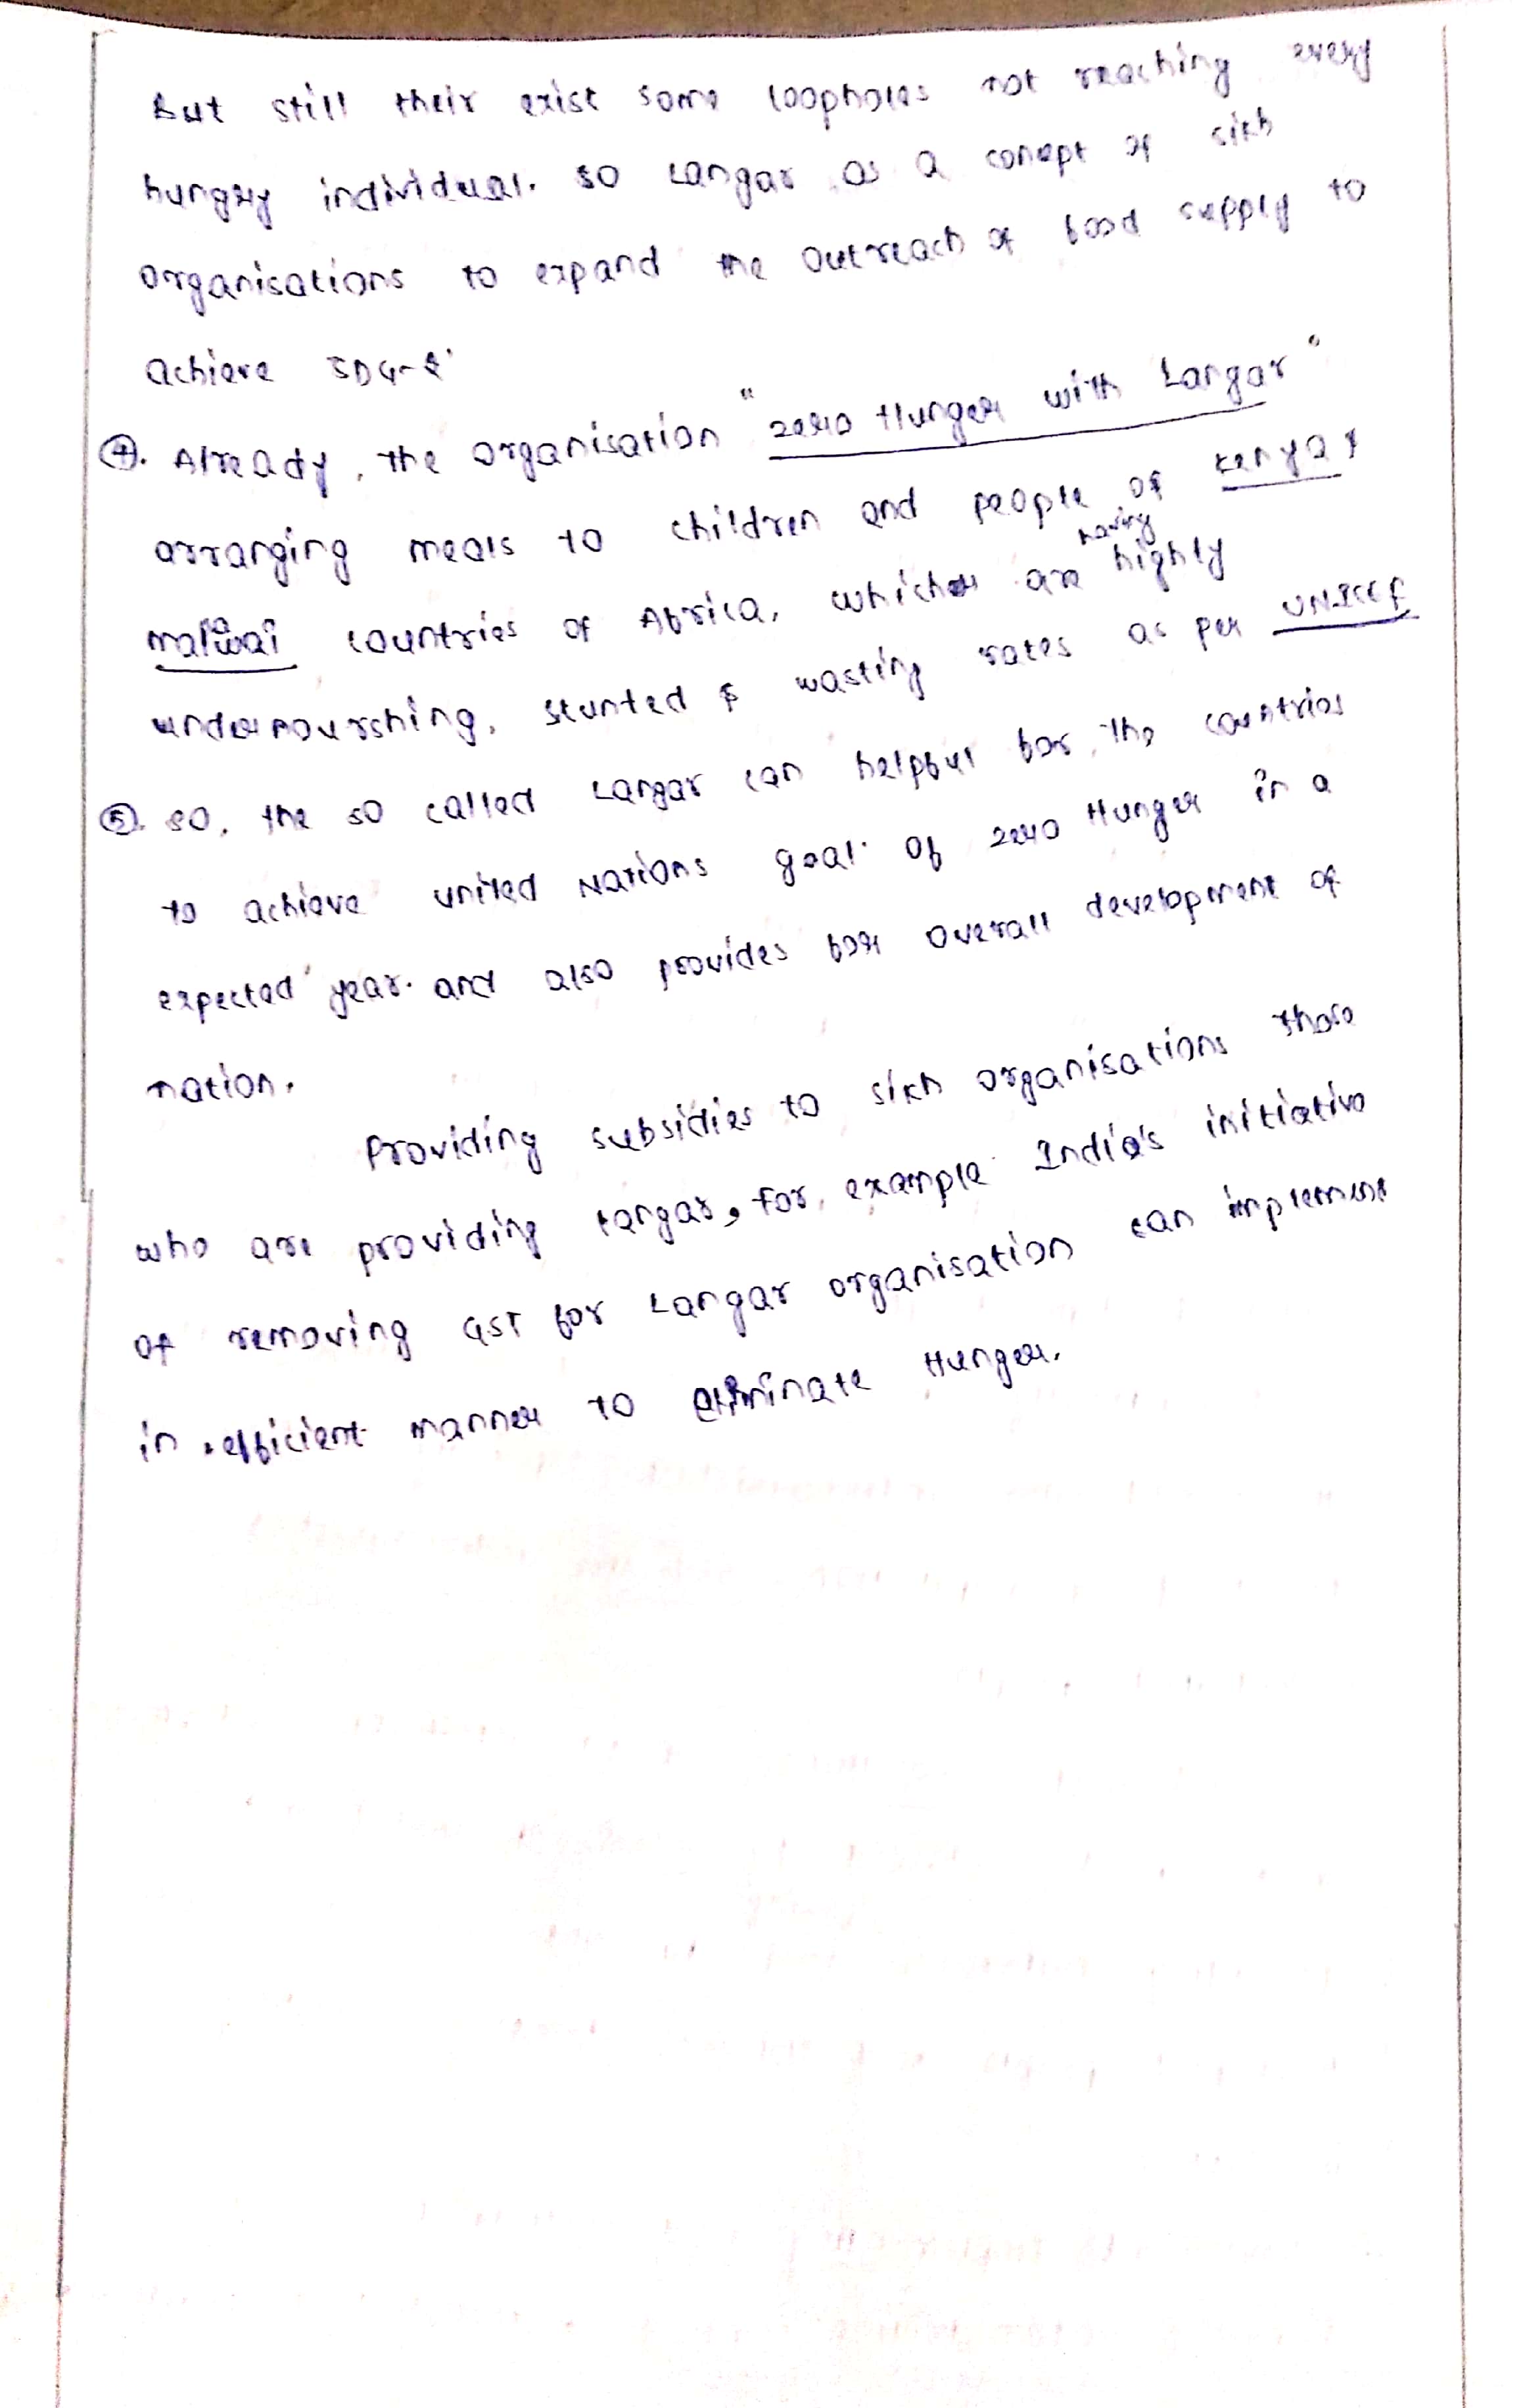 But still their exist some loopholes not reaching every
hungry individual. so Langar as a conept of sikh
organisations to expand the outreach of food supply to
achieve SDG-2.
④. Already, the organisation "zero Hunger with Langar"
arranging meals to children and people of Kenya &
malwai countries of Africa, which are having highly
undernourshing, stunted & wasting rates as per UNICEF
⑤. so, the so called Langar can helpful for the countries
to achieve united Nations goal of zero Hunger in a
expected year. and also provides for overall development of
nation.
Providing subsidies to sikh organisations those
who are providing langar, for example India's initiative
of removing GST for Langar organisation can implement
in efficient manner to eliminate Hunger.